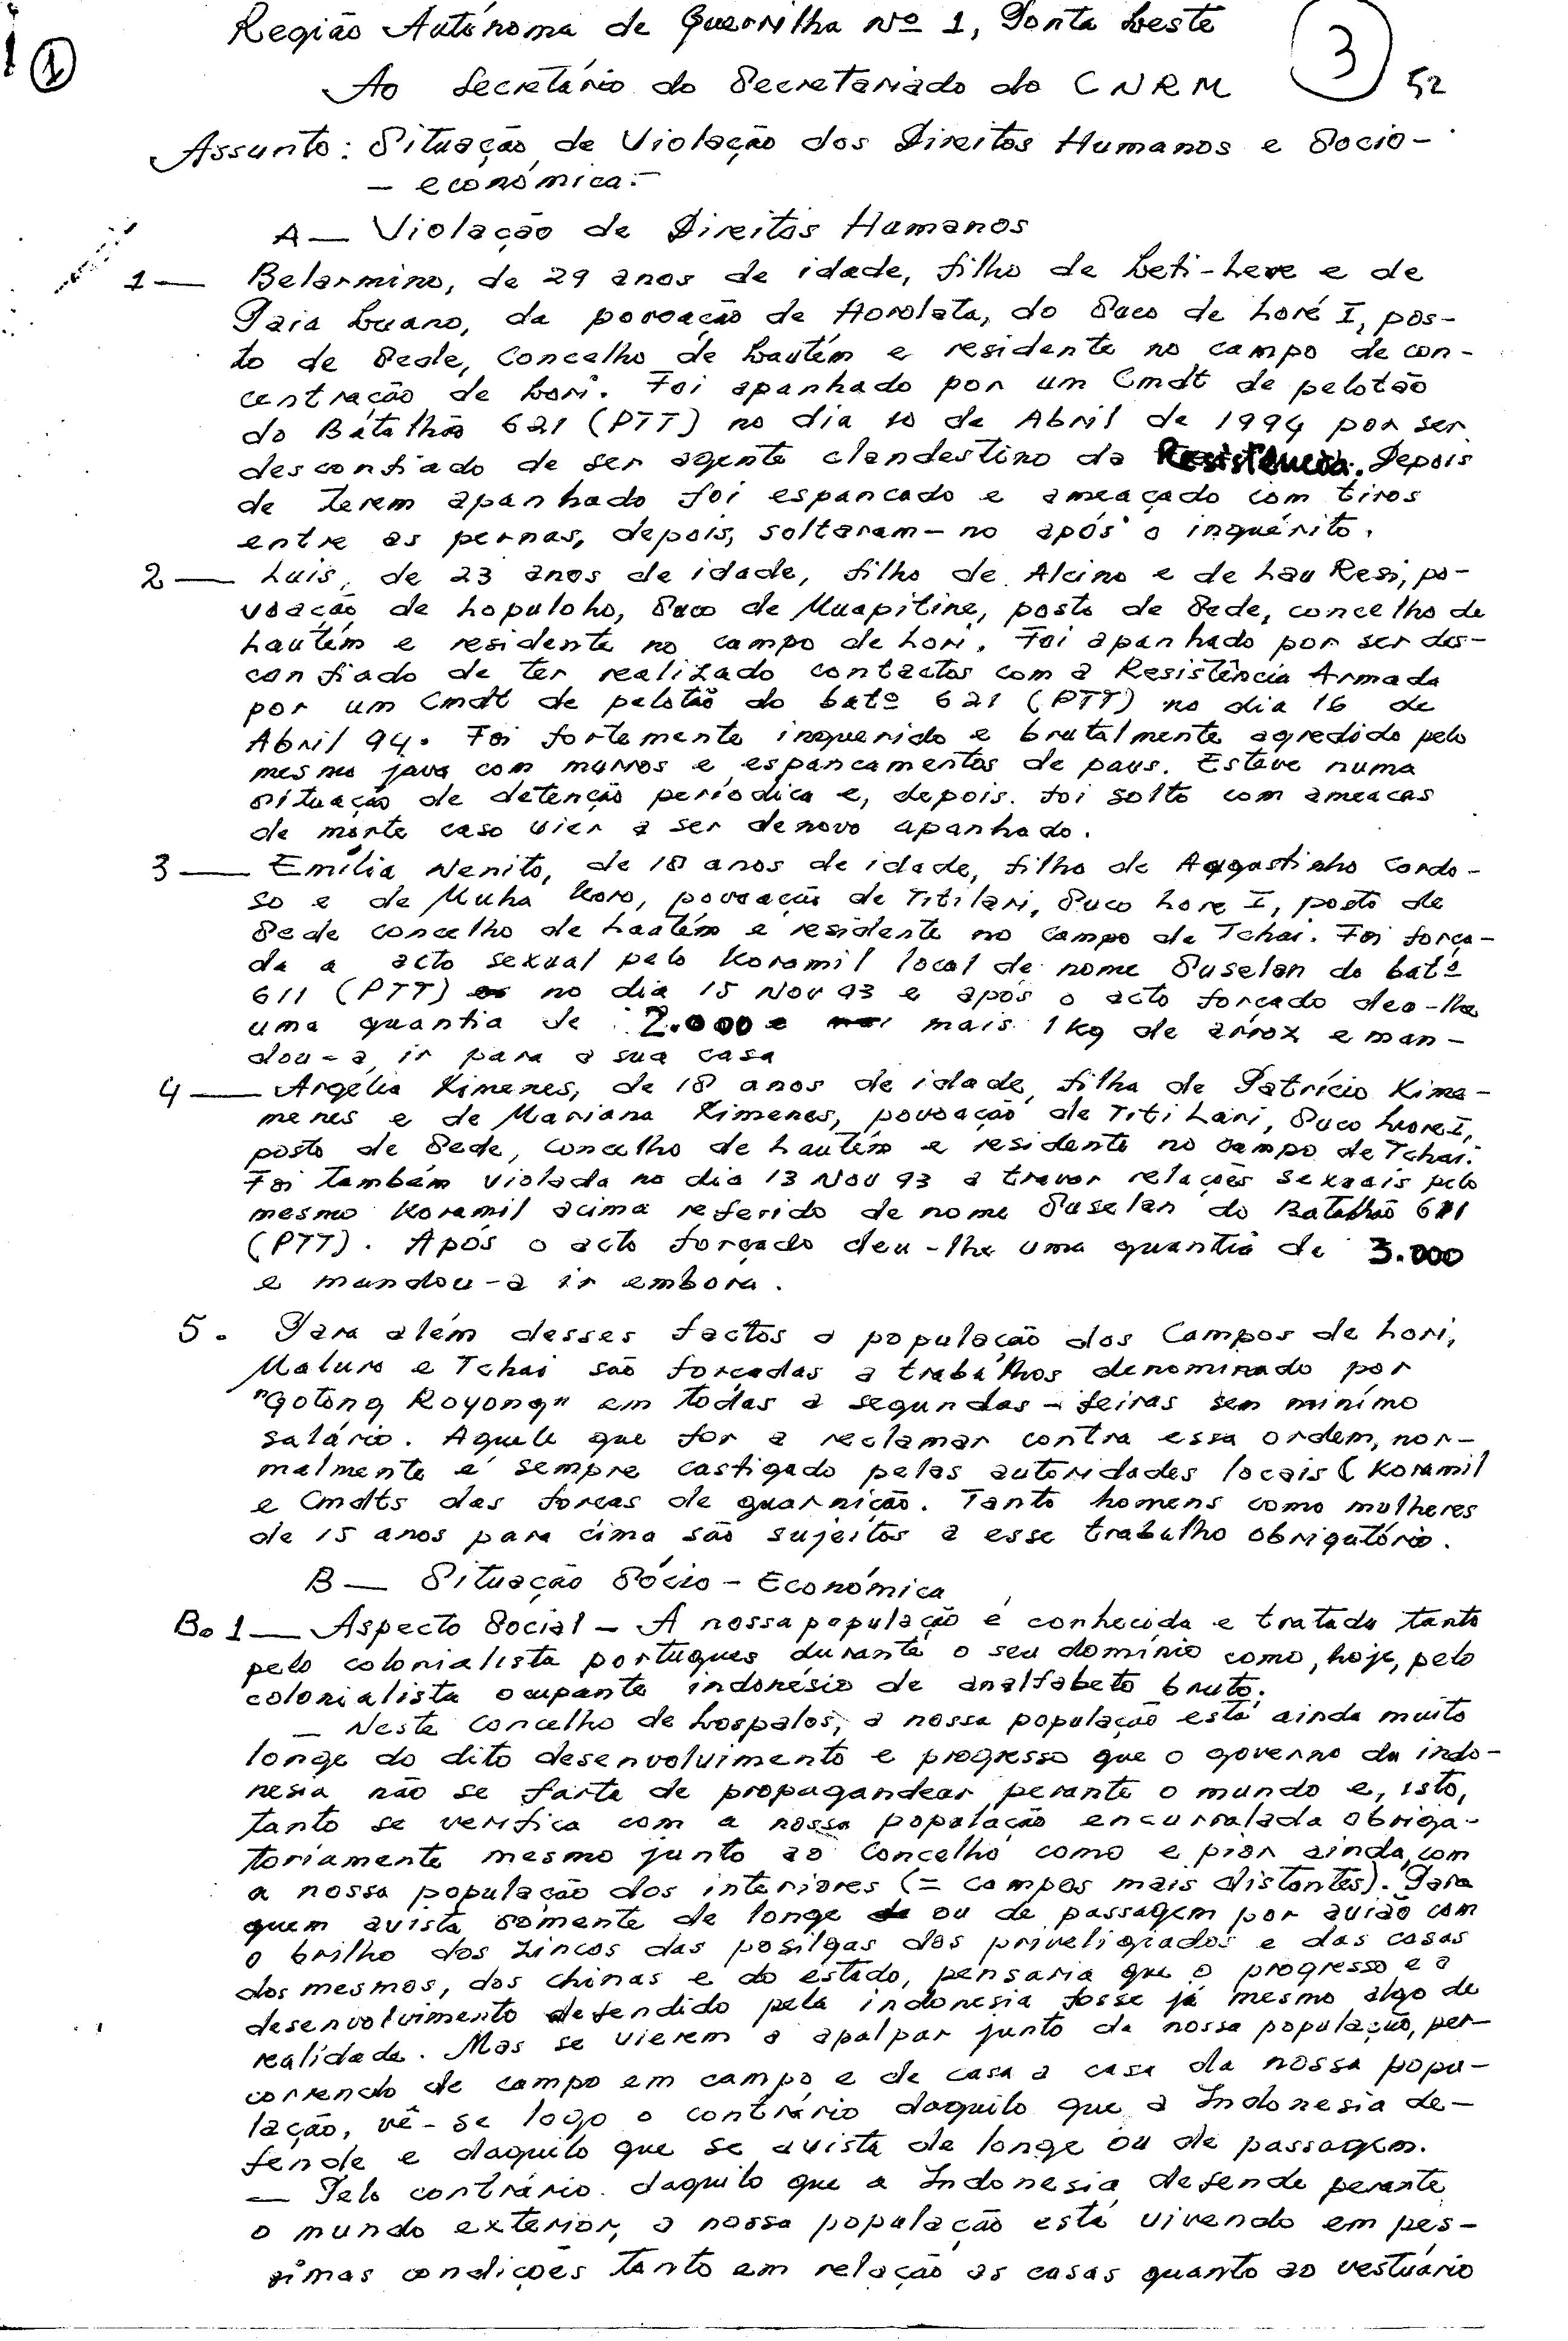 Região Autónoma de Guerrilha Nº 1, Ponta Leste
1
3
52
Ao Secretário do Secretariado do CNRM
Assunto: Situação de Violação dos Direitos Humanos e Socio-
- económica:-
A — Violação de Direitos Humanos
1 — Belarmino, de 29 anos de idade, filho de Leti-Leve e de
Paia Luano, da povoação de Horolata, do Suco de Loré I, pos-
to de Sede, Concelho de Lautém e residente no campo de con-
centração de Lori. Foi apanhado por um Cmdt de pelotão
do Batalhão 621 (PTT) no dia 10 de Abril de 1994 por ser
desconfiado de ser agente clandestino da Resistência. Depois
de terem apanhado foi espancado e ameaçado com tiros
entre as pernas, depois, soltaram-no após o inquérito.
2 — Luis, de 23 anos de idade, filho de Alcino e de Lau Resi, po-
voação de Lopuloho, Suco de Muapitine, posto de Sede, concelho de
Lautém e residente no campo de Lori. Foi apanhado por ser des-
confiado de ter realizado contactos com a Resistência Armada
por um Cmdt de pelotão do batº 621 (PTT) no dia 16 de
Abril 94. Foi fortemente inquerido e brutalmente agredido pelo
mesmo java com murros e espancamentos de paus. Esteve numa
situação de detenção períodica e, depois. foi solto com ameacas
de morte caso vier a ser denovo apanhado.
3 — Emília Nenito, de 18 anos de idade, filho de Aggostinho Cardo-
so e de Muha Koro, povoação de Titilari, Suco Lore I, posto de
Sede concelho de Lautém e residente no campo de Tchai. Foi força-
da a acto sexual pelo Koramil local de nome Suselan do batº
611 (PTT) no dia 15 Nov 93 e após o acto forçado deo-lhe
uma quantia de 2.000 e mais 1 kg de arrox e man-
dou-a ir para a sua casa
4 — Argélia Ximenes, de 18 anos de idade, filha de Patrício Xime-
menes e de Mariana Ximenes, povoação de Titi Lari, Suco Lore I,
posto de Sede, concelho de Lautém e residente no campo de Tchai.
Foi também violada no dia 13 Nov 93 a travar relações sexuais pelo
mesmo Koramil acima referido de nome Suselan do Batalhão 611
(PTT). Após o acto forçado deu-lhe uma quantia de 3.000
e mandou-a ir embora.
5. Para além desses factos a população dos Campos de Lori,
Maluro e Tchai são forçadas a trabalhos denominado por
"Gotong Royong" em todas a segundas-feiras sem minímo
salário. Aquele que for a reclamar contra essa ordem, nor-
malmente é sempre castigado pelas autoridades locais (Koramil
e Cmdts das forcas de guarnição. Tanto homens como mulheres
de 15 anos para cima são sujeitos a esse trabalho obrigatório.
B — Situação Sócio-Económica
B. 1 — Aspecto Social - A nossa população é conhecida e tratada tanto
pelo colonialista portugues durante o seu domínio como, hoje, pelo
colonialista ocupante indonésio de analfabeto bruto.
— Neste concelho de Lospalos, a nossa população está ainda muito
longe do dito desenvolvimento e progresso que o governo da indo-
nesia não se farta de propagandear perante o mundo e, isto,
tanto se verifica com a nossa população encurralada obriga-
toriamente mesmo junto ao Concelho como e pior ainda, com
a nossa população dos interiores (= campos mais distantes). Para
quem avista somente de longe ou de passagem por avião com
o brilho dos zincos das posilgas dos priveligiados e das casas
dos mesmos, dos chinas e do estado, pensaria que o progresso e o
desenvolvimento defendido pela indonesia fosse já mesmo algo de
realidade. Mas se vierem a apalpar junto da nossa população, per-
correndo de campo em campo e de casa a casa da nossa popu-
lação, vê-se logo o contrário daquilo que a Indonesia de-
fende e daquilo que se avista de longe ou de passagem.
— Pelo contrário. daquilo que a Indonesia defende perante
o mundo exterior, a nossa população está vivendo em pes-
simas condições tanto em relação as casas quanto ao vestuário